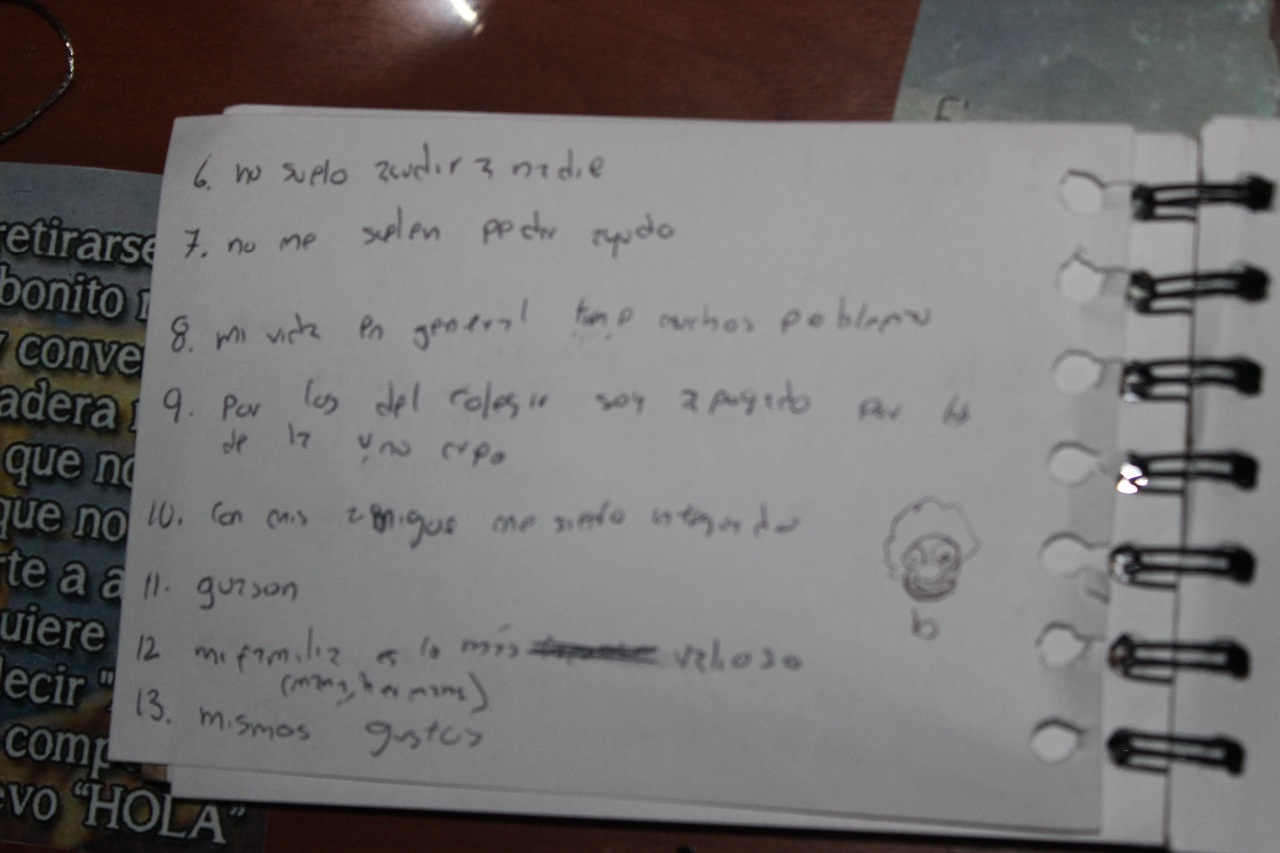 6. no suelo acudir a nadie
7. no me suelen pedir ayuda
8. mi vida en general tiene muchos poblemas
9. Por los del colegio soy apagado por los
de la
10. con mis amigos me siento integrado
11.
12 mi familia es lo más valioso
(mama, hermana)
13. mismos gustos
b
retirarse
bonito
conve
adera
que no
que no
rte a a
uiere
decir "
comp
evo “HOLA”